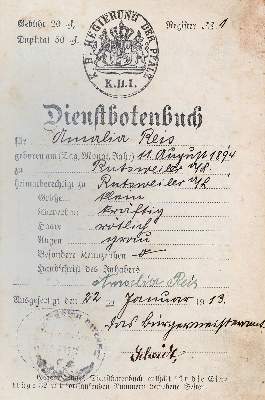 Gebühr 20 ₰.
Register № 1
Duplikat 50 ₰.
K. B. REGIERUNG DER PFALZ
K.D.I.
Dienstbotenbuch
für Amalia Reis
geboren am (Tag, Monat, Jahr) 11. August 1894
zu Rutsweiler a/L.
heimatberechtigt zu Rutsweiler a/L
Größe klein
kräftig
Haare rötlich
Augen grau
Besondere Kennzeichen
Handschrift des Inhabers
Amalia Reis
Ausgefertigt den 22 Januar 1913.
Das Bürgermeisteramt.
Dienstbotenbuch enthält für die Ein-